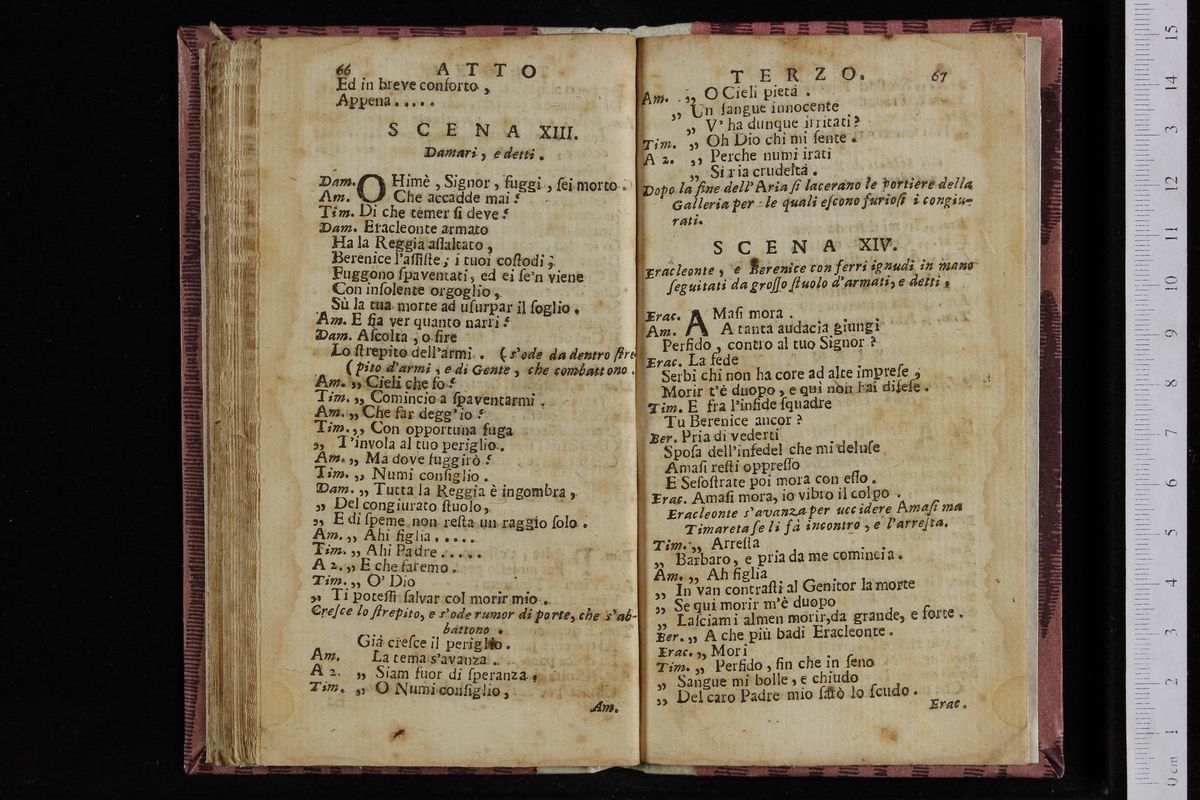 66 ATTO
Ed in breve conforto,
Appena.....
SCENA XIII.
Damari, e detti.
Dam. OHimè, Signor, fuggi, sei morto.
Am. Che accadde mai?
Tim. Di che temer si deve?
Dam. Eracleonte armato
Ha la Reggia assaltato,
Berenice l'assiste; i tuoi costodi;
Fuggono spaventati, ed ei se'n viene
Con insolente orgoglio,
Sù la tua morte ad usurpar il soglio.
Am. E fia ver quanto narri?
Dam. Ascolta, o sire
Lo strepito dell'armi. (s'ode da dentro stre
(pito d'armi, e di Gente, che combattono.
Am. „ Cieli che fo?
Tim. „ Comincio a spaventarmi.
Am. „ Che far degg'io?
Tim. „ Con opportuna fuga
„ T'invola al tuo periglio.
Am. „ Ma dove fuggirò?
Tim. „ Numi consiglio.
Dam. „ Tutta la Reggia è ingombra,
„ Del congiurato stuolo,
„ E di speme non resta un raggio solo.
Am. „ Ahi figlia.....
Tim. „ Ahi Padre.....
A 2. „ E che faremo.
Tim. „ O' Dio
„ Ti potessi salvar col morir mio.
Cresce lo strepito, e s'ode rumor di porte, che s'ab-
battono.
Già cresce il periglio.
Am. La tema s'avanza.
A 2. „ Siam fuor di speranza.
Tim. „ O Numi consiglio,
Am.
TERZO. 67
Am. „ O Cieli pietà.
„ Un sangue innocente
„ V'ha dunque irritati?
Tim. „ Oh Dio chi mi sente.
A 2. „ Perche numi irati
„ Si ria crudeltà.
Dopo la fine dell'Aria si lacerano le portiere della
Galleria per le quali escono furiosi i congiu-
rati.
SCENA XIV.
Eracleonte, e Berenice con ferri ignudi in mano
seguitati da grosso stuolo d'armati, e detti.
Erac. AMasi mora.
Am. A tanta audacia giungi
Perfido, contro al tuo Signor?
Erac. La fede
Serbi chi non ha core ad alte imprese,
Morir t'è duopo, e qui non hai difese.
Tim. E fra l'infide squadre
Tu Berenice ancor?
Ber. Pria di vederti
Sposa dell'infedel che mi deluse
Amasi resti oppresso
E Sesostrate poi mora con esso.
Erac. Amasi mora, io vibro il colpo.
Eracleonte s'avanza per uccidere Amasi ma
Timareta se li fà incontro, e l'arresta.
Tim. „ Arresta
„ Barbaro, e pria da me comincia.
Am. „ Ah figlia
„ In van contrasti al Genitor la morte
„ Se qui morir m'è duopo
„ Lasciami almen morir, da grande, e forte.
Ber. „ A che più badi Eracleonte.
Erac. „ Mori
Tim. „ Perfido, fin che in seno
„ Sangue mi bolle, e chiudo
„ Del caro Padre mio sarò lo scudo.
Erac.
0 cm 1 2 3 4 5 6 7 8 9 10 11 12 13 14 15